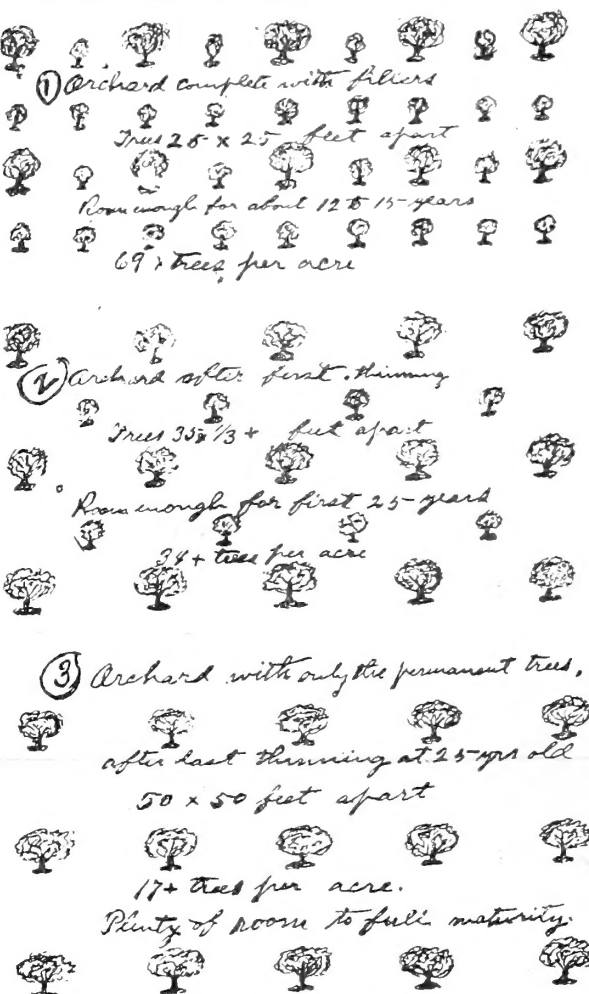 ① Orchard complete with fillers
Trees 25 x 25 feet apart
Room enough for about 12 to 15 years
69+ trees per acre
② Orchard after first thinning
Trees 35 1/3 + feet apart
Room enough for first 25 years
34+ trees per acre
③ Orchard with only the permanent trees,
after last thinning at 25 yrs old
50 x 50 feet apart
17+ trees per acre.
Plenty of room to full maturity.